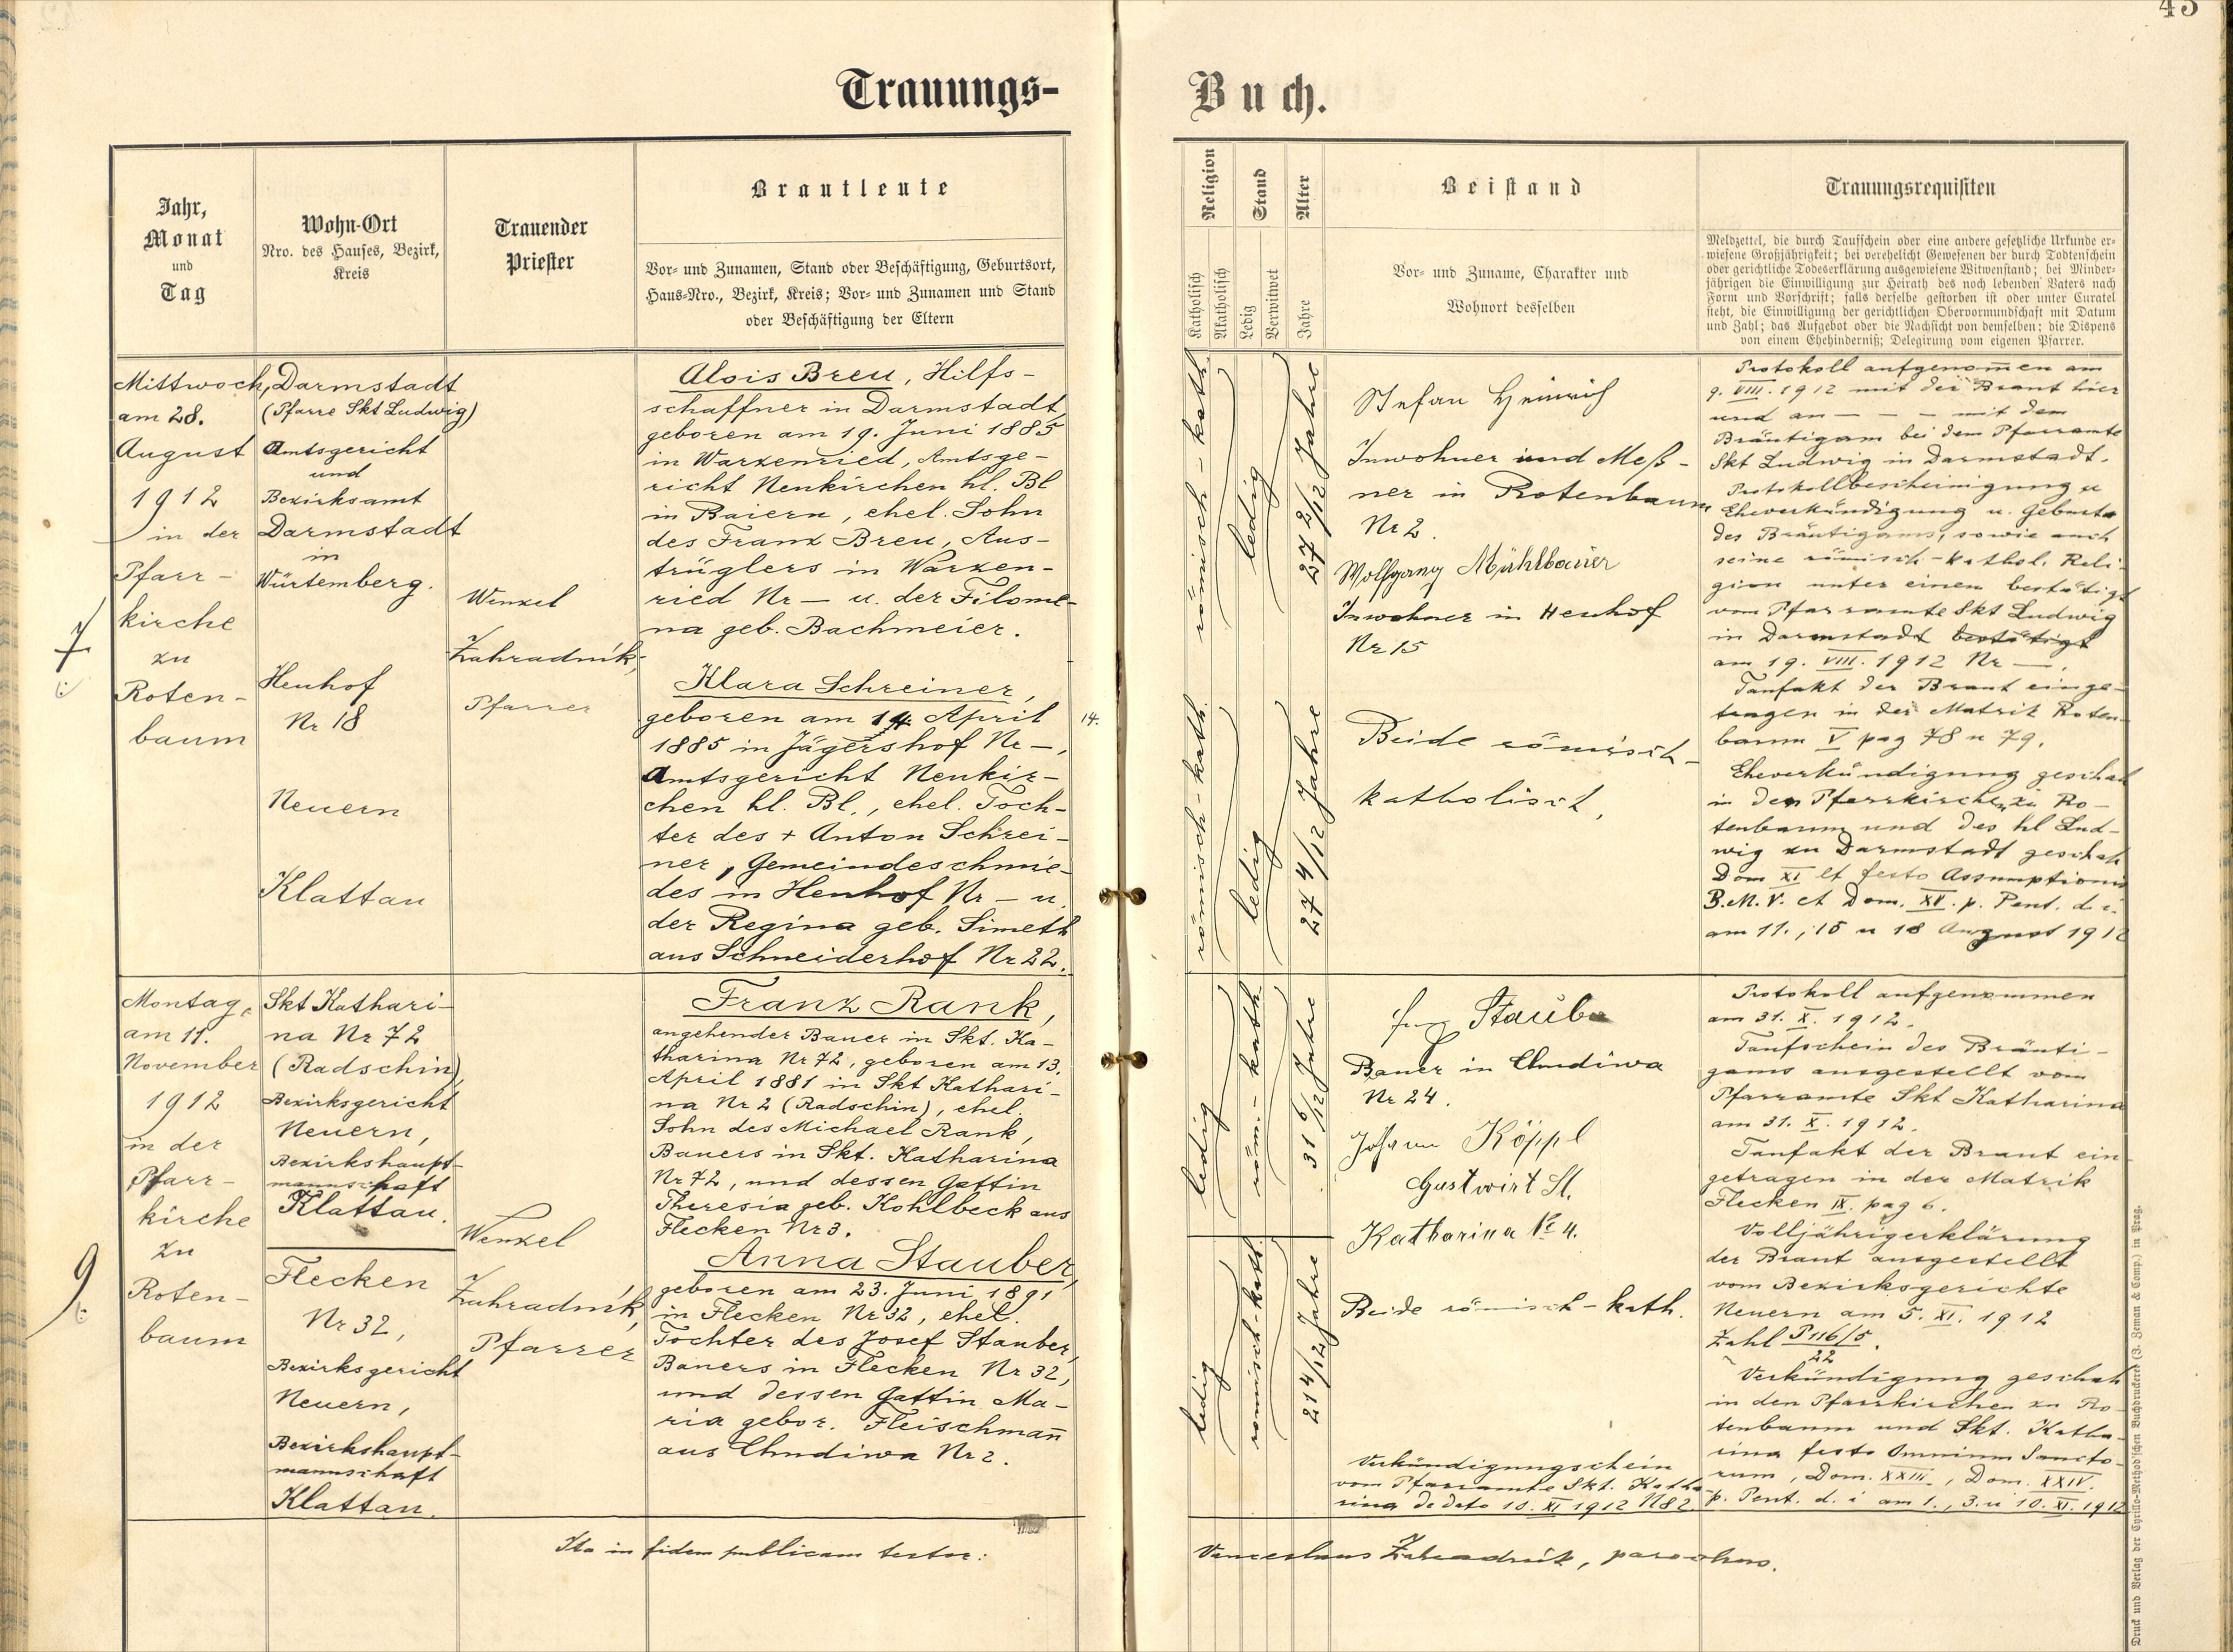 45
Trauungs-
Buch.
Jahr,
Monat
und
Tag
Wohn-Ort
Nro. des Hauses, Bezirk,
Kreis
Trauender
Priester
Brautleute
Vor- und Zunamen, Stand oder Beschäftigung, Geburtsort,
Haus-Nro., Bezirk, Kreis; Vor- und Zunamen und Stand
oder Beschäftigung der Eltern
Religion
Katholisch
Akatholisch
Stand
Ledig
Verwitwet
Alter
Jahre
Beistand
Vor- und Zuname, Charakter und
Wohnort desselben
Trauungsrequisiten
Meldzettel, die durch Taufschein oder eine andere gesetzliche Urkunde er-
wiesene Großjährigkeit; bei verehelicht Gewesenen der durch Todtenschein
oder gerichtliche Todeserklärung ausgewiesene Witwenstand; bei Minder-
jährigen die Einwilligung zur Heirath des noch lebenden Vaters nach
Form und Vorschrift; falls derselbe gestorben ist oder unter Curatel
steht, die Einwilligung der gerichtlichen Obervormundschaft mit Datum
und Zahl; das Aufgebot oder die Nachsicht von demselben; die Dispens
von einem Ehehinderniß; Delegirung vom eigenen Pfarrer.
7
Mittwoch,
am 28.
August
1912
in der
Pfarr-
kirche
zu
Roten-
baum
Darmstadt
(Pfarre Skt Ludwig)
Amtsgericht
und
Bezirksamt
Darmstadt
in
Würtemberg.
Heuhof
Nr 18
Neuern
Klattau
Wenzel
Zahradník,
Pfarrer
Alois Breu, Hilfs-
schaffner in Darmstadt,
geboren am 19. Juni 1885
in Warzenried, Amtsge-
richt Neukirchen hl. Bl
in Baiern, ehel. Sohn
des Franz Breu, Aus-
trüglers in Warzen-
ried Nr — u. der Filome-
na geb. Bachmeier.
Klara Schreiner,
geboren am 14. April
14.
1885 in Jägershof Nr —,
Amtsgericht Neukir-
chen hl. Bl., ehel. Toch-
ter des + Anton Schrei-
ner, Gemeindeschmie-
des in Heuhof Nr — u.
der Regina geb. Simeth
aus Schneiderhof Nr 22.
römisch-kath.
ledig
27 2/12 Jahre
römisch-kath.
ledig
27 4/12 Jahre
Stefan Heinrich
Inwohner und Meß-
ner in Rotenbaum
Nr 2.
Wolfgang Mühlbauer
Inwohner in Heuhof
Nr 15
Beide römisch-
katholisch.
Protokoll aufgenom̄en am
9. VIII. 1912 mit der Braut hier
und am — — — mit dem
Bräutigam bei dem Pfarramte
Skt Ludwig in Darmstadt.
Protokollbescheinigung u
Eheverkündigung u. Geburts
des Bräutigams, sowie auch
seine römisch-kathol. Reli-
gion unter einem bestätigt
vom Pfarramte Skt Ludwig
in Darmstadt bestätigt
am 19. VIII. 1912 Nr —.
Taufakt der Braut einge-
tragen in der Matrik Roten-
baum V pag 78 u 79.
Eheverkündigung geschah
in den Pfarrkirchen zu Ro-
tenbaum und des hl Lud-
wig zu Darmstadt geschah
Dom XI et festo Assumptionis
B.M.V. et Dom. XV. p. Pent. d. i.
am 11., 15 u 18 August 1912
9.
Montag,
am 11.
November
1912
in der
Pfarr-
kirche
zu
Roten-
baum
Skt Kathari-
na Nr 72
(Radschin),
Bezirksgericht
Neuern,
Bezirkshaupt-
mannschaft
Klattau.
Flecken
Nr 32,
Bezirksgericht
Neuern,
Bezirkshaupt-
mannschaft
Klattau.
Wenzel
Zahradník,
Pfarrer
Franz Rank,
angehender Bauer in Skt. Ka-
tharina Nr 72, geboren am 13.
April 1881 in Skt Kathari-
na Nr 2 (Radschin), ehel.
Sohn des Michael Rank,
Bauers in Skt. Katharina
Nr 72, und dessen Gattin
Theresia geb. Kohlbeck aus
Flecken Nr 3.
Anna Stauber,
geboren am 23. Juni 1891
in Flecken Nr 32, ehel.
Tochter des Josef Stauber,
Bauers in Flecken Nr 32,
und dessen Gattin Ma-
ria gebor. Fleischman̄
aus Chudiwa Nr 2.
ledig
röm.-kath.
31 6/12 Jahre
ledig
römisch-kath.
21 4/12 Jahre
Stauber
Bauer in Chudiwa
Nr 24.
Johann Köppl
Gastwirt St.
Katharina Nr 4.
Beide römisch-kath.
Verkündigungschein
vom Pfarramte Skt. Katha-
rina de dato 10. XI 1912 N82
Protokoll aufgenommen
am 31. X. 1912.
Taufschein des Bräuti-
gams ausgestellt vom
Pfarramte Skt Katharina
am 31. X. 1912.
Taufakt der Braut ein
getragen in der Matrik
Flecken IX. pag 6.
Volljährigerklärung
der Braut ausgestellt
vom Bezirksgerichte
Neuern am 5. XI. 1912
Zahl P 116/5.
22
Verkündigung geschah
in den Pfarrkirchen zu Ro-
tenbaum und Skt. Katha-
rina festo Omnium Sancto-
rum, Dom. XXIII., Dom. XXIV.
p. Pent. d. i am 1., 3. u 10. XI. 1912
Ita in fidem publicam testor:
Venceslaus Zahradník, parochus.
Druck und Verlag der Cyrillo-Method'schen Buchdruckerei (J. Zeman & Comp.) in Prag.